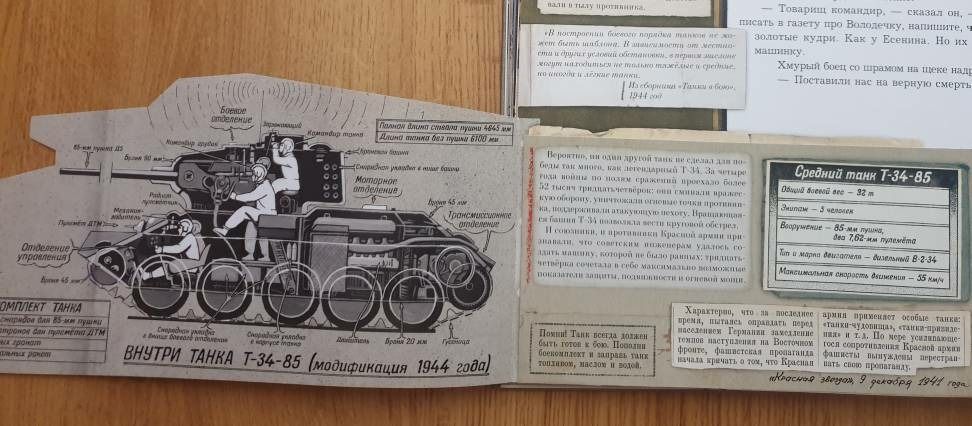 вали в тылу противника.
«В построении боевого порядка танков не мо-
жет быть шаблона. В зависимости от местно-
сти и других условий обстановки, в первом эшелоне
могут находиться не только тяжёлые и средние,
но иногда и лёгкие танки.
Из сборника «Танки в бою»,
1944 год
— Товарищ командир, — сказал он, —
писать в газету про Володечку, напишите,
золотые кудри. Как у Есенина. Но их
машинку.
Хмурый боец со шрамом на щеке
— Поставили нас на верную смерть
Боевое
отделение
Заряжающий
Командир танка
Командир орудия
Полная длина ствола пушки 4645 мм
Длина танка без пушки 6100 мм
85-мм пушка
Броня 90 мм
Броневая башня
Снарядная укладка в нише башни
Моторное
отделение
Радист
пулемётчик
Броня 45 мм
Трансмиссионное
отделение
Пулемёт ДТМ
Механик-
водитель
Отделение
управления
Броня 45 мм
Снарядная укладка
в нише боевого отделения
Снарядная укладка
в корпусе танка
Двигатель
Броня 20 мм
Гусеница
ОМПЛЕКТ ТАНКА
снарядов для 85-мм пушки
патронов для пулемёта ДТМ
ных гранат
альных ракет
ВНУТРИ ТАНКА Т-34-85 (модификация 1944 года)
Вероятно, ни один другой танк не сделал для по-
беды так много, как легендарный Т-34. За четыре
года войны по полям сражений проехало более
52 тысяч тридцатьчетвёрок: они сминали вражес-
кую оборону, уничтожали огневые точки противни-
ка, поддерживали атакующую пехоту. Вращающая-
ся башня Т-34 позволяла вести круговой обстрел.
И союзники, и противники Красной армии при-
знавали, что советским инженерам удалось со-
здать машину, которой не было равных: тридцать-
четвёрка сочетала в себе максимально возможные
показатели защиты, подвижности и огневой мощи.
Средний танк Т-34-85
Общий боевой вес — 32 т
Экипаж — 5 человек
Вооружение — 85-мм пушка,
два 7,62-мм пулемёта
Тип и марка двигателя — дизельный В-2-34
Максимальная скорость движения — 55 км/ч
Помни! Танк всегда должен
быть готов к бою. Пополни
боекомплект и заправь танк
топливом, маслом и водой.
Характерно, что за последнее
время, пытаясь оправдать перед
населением Германии замедление
темпов наступления на Восточном
фронте, фашистская пропаганда
начала кричать о том, что Красная
армия применяет особые танки:
«танки-чудовища», «танки-привиде-
ния» и т.д. По мере усиливающе-
гося сопротивления Красной армии
фашисты вынуждены перестраи-
вать свою пропаганду.
«Красная звезда», 9 декабря 1941 года